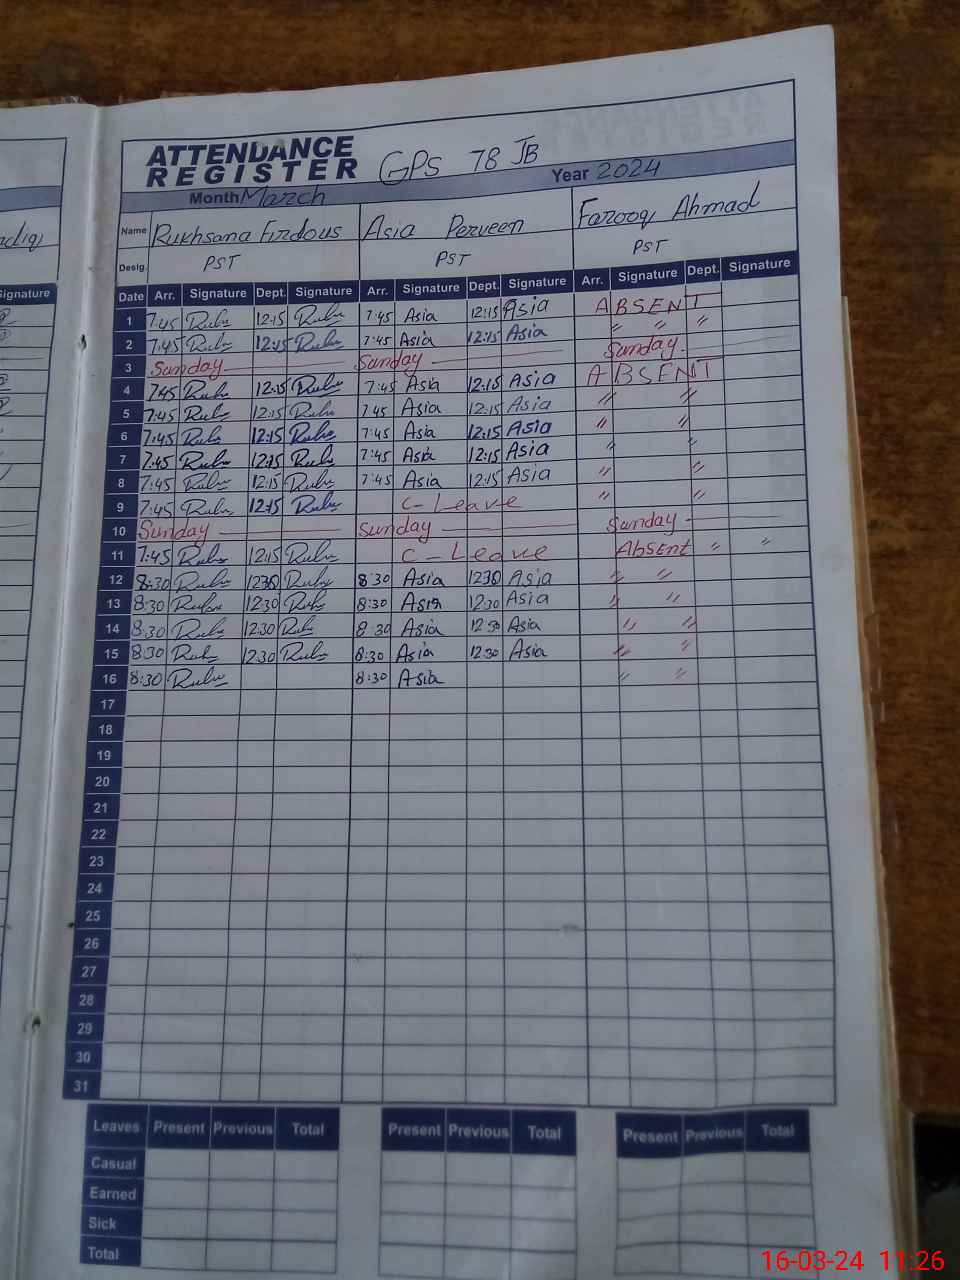 ATTENDANCE
REGISTER GPS 78 JB
Month March Year 2024
Name Rukhsana Firdous Asia Perveen Farooq Ahmad
Desig. PST PST PST
Date Arr. Signature Dept. Signature Arr. Signature Dept. Signature Arr. Signature Dept. Signature
1 7:45 12:15 7:45 Asia 12:15 Asia ABSENT
2 7:45 12:15 7:45 Asia 12:15 Asia " " "
3 Sunday Sunday Sunday
4 7:45 12:15 7:45 Asia 12:15 Asia ABSENT
5 7:45 12:15 7:45 Asia 12:15 Asia " "
6 7:45 12:15 7:45 Asia 12:15 Asia " "
7 7:45 12:15 7:45 Asia 12:15 Asia " "
8 7:45 12:15 7:45 Asia 12:15 Asia " "
9 7:45 12:15 C-Leave " "
10 Sunday Sunday Sunday
11 7:45 12:15 C-Leave Absent " "
12 8:30 1230 8:30 Asia 1230 Asia " "
13 8:30 12:30 8:30 Asia 12:30 Asia " "
14 8:30 12:30 8:30 Asia 12:30 Asia " "
15 8:30 12:30 8:30 Asia 12:30 Asia " "
16 8:30 8:30 Asia " "
17
18
19
20
21
22
23
24
25
26
27
28
29
30
31
Leaves Present Previous Total Present Previous Total Present Previous Total
Casual
Earned
Sick
Total
16-03-24 11:26